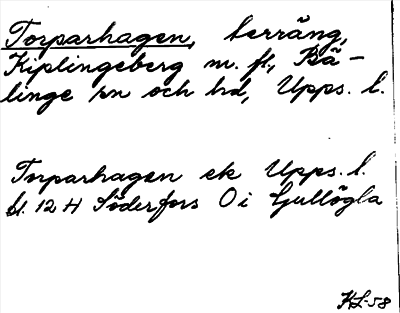 Torparhagen, berräng,
Kiplingeberg m. fl., Bä-
linge sn och hd, Upps. l.
Torparhagen ek Upps. l.
bl. 12 H Söderfors O i Gullögla
KL-58